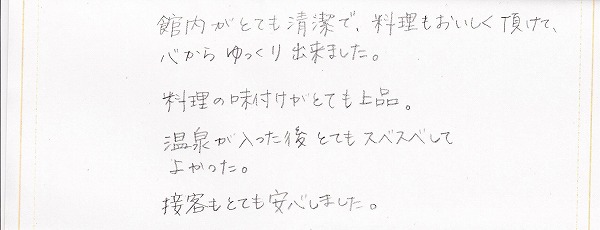 館内がとても清潔で、料理もおいしく頂けて、
心からゆっくり出来ました。
料理の味付けがとても上品。
温泉が入った後とてもスベスベして
よかった。
接客もとても安心しました。